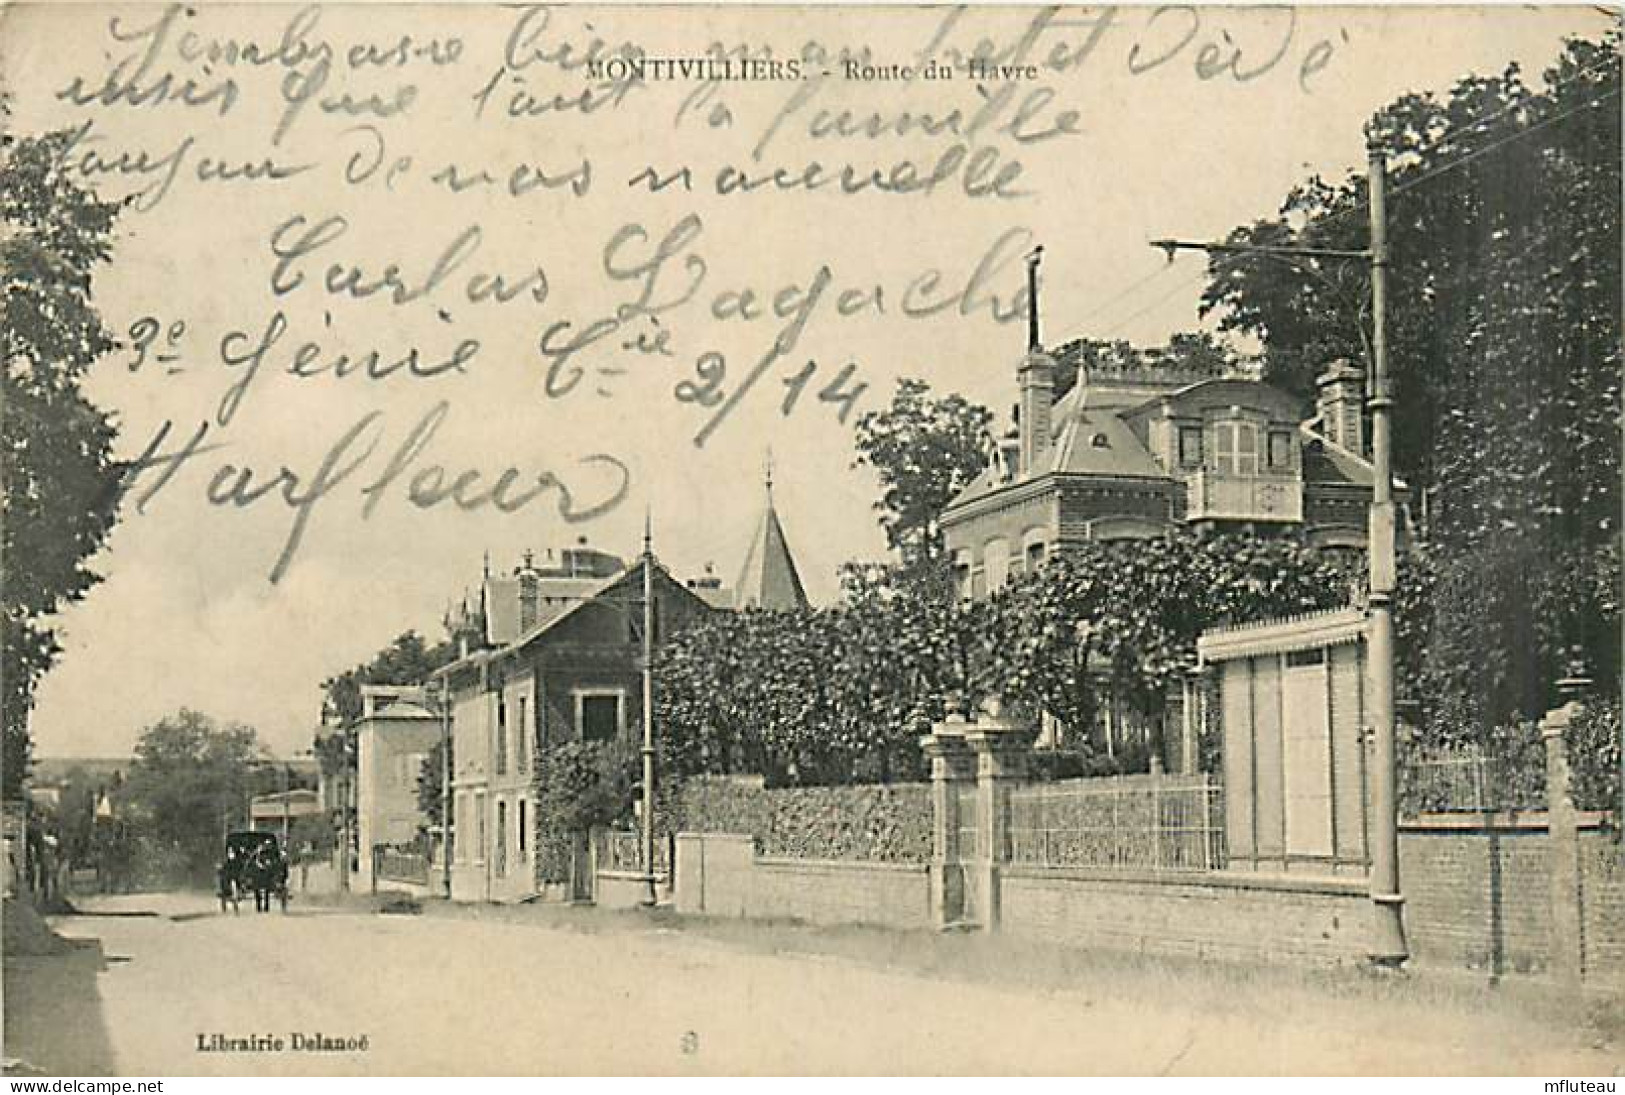 J'embrasse bien mon petit Dédé
MONTIVILLIERS. - Route du Havre
insis que tout la famille
toujour de nos nouvelle
Carlos Lagache
3e Génie Cie 2/14
Harfleur
Librairie Delanoé
8
delcampe.net
mfluteau